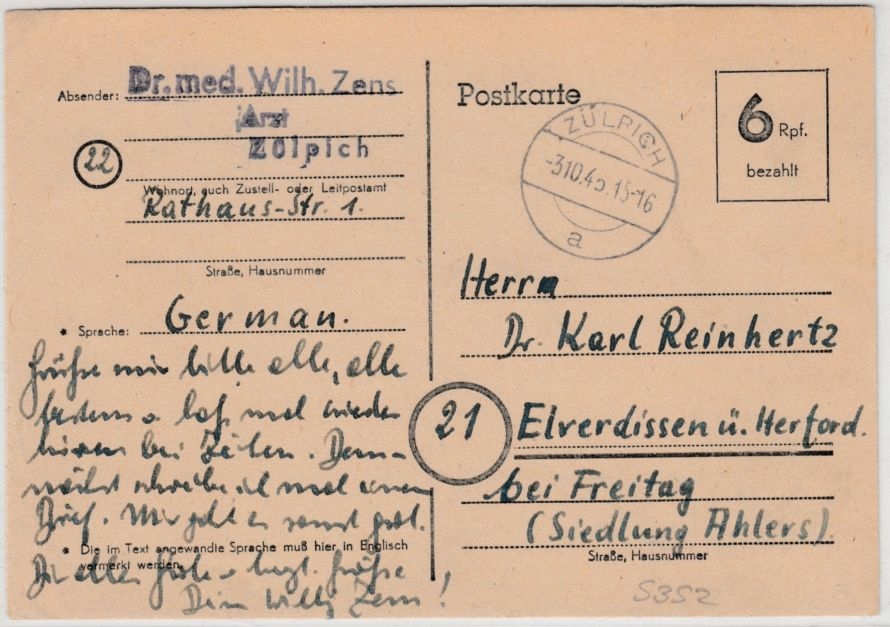 Absender: Dr. med. Wilh. Zens
Arzt
Zülpich
22
Wohnort, auch Zustell- oder Leitpostamt
Rathaus-Str. 1.
Straße, Hausnummer
* Sprache: German.
Grüße mir bitte alle, alle
bestens u. laß mal wieder
hören bei Zeiten. Dem-
nächst schreibe ich mal einen
Brief. Mir geht es sonst gut.
* Die im Text angewandte Sprache muß hier in Englisch
vermerkt werden.
Dir alles Gute u. herzl. Grüße
Dein Willy Zens!
Postkarte
6 Rpf.
bezahlt
ZÜLPICH
-3.10.45.15-16
a
Herrn
Dr. Karl Reinhertz
21 Elverdissen ü. Herford.
bei Freitag
(Siedlung Ahlers).
Straße, Hausnummer
5352